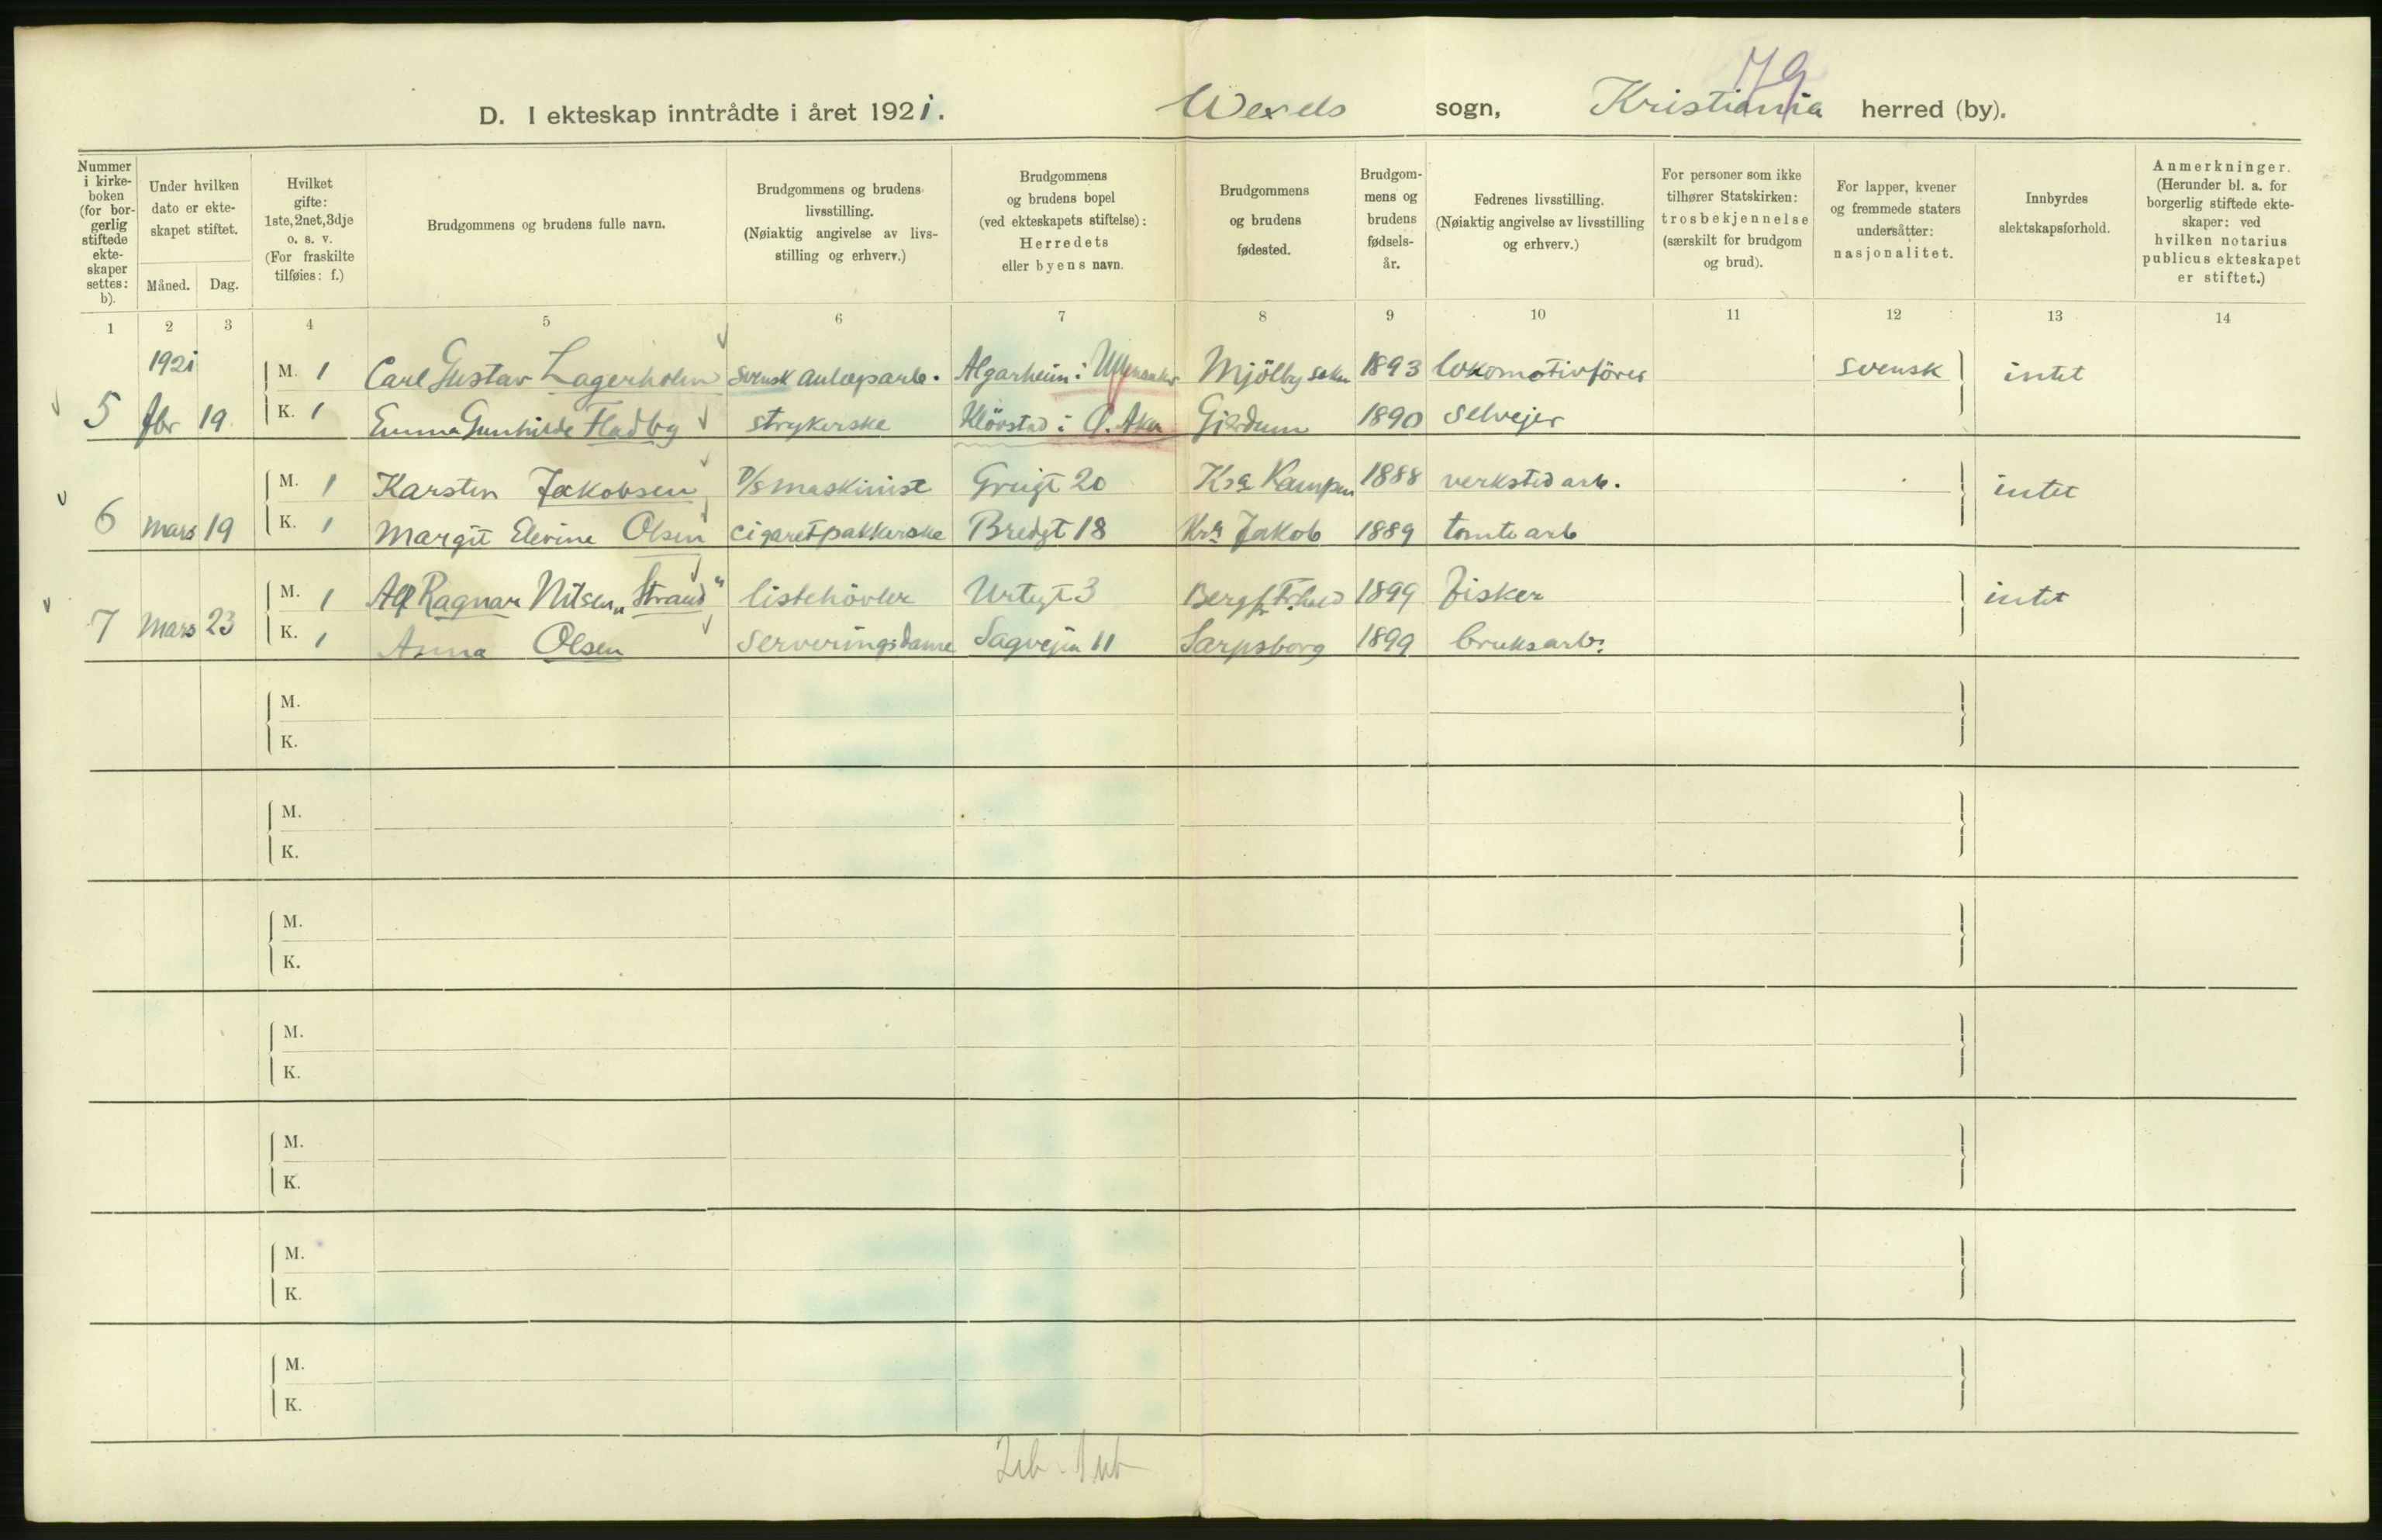 79
D. I ekteskap inntrådte i året 1921. Wexels sogn, Kristiania herred (by).
Nummer i kirke- boken (for bor- gerlig stiftede ekte- skaper settes: b).
Under hvilken dato er ekte- skapet stiftet.
Måned. Dag.
Hvilket gifte: 1ste, 2net, 3dje o. s. v. (For fraskilte tilføies: f.)
Brudgommens og brudens fulle navn.
Brudgommens og brudens livsstilling. (Nøiaktig angivelse av livs- stilling og erhverv.)
Brudgommens og brudens bopel (ved ekteskapets stiftelse): Herredets eller byens navn.
Brudgommens og brudens fødested.
Brudgom- mens og brudens fødsels- år.
Fedrenes livsstilling. (Nøiaktig angivelse av livsstilling og erhverv.)
For personer som ikke tilhører Statskirken: trosbekjennelse (særskilt for brudgom og brud).
For lapper, kvener og fremmede staters undersåtter: nasjonalitet.
Innbyrdes slektskapsforhold.
Anmerkninger. (Herunder bl. a. for borgerlig stiftede ekte- skaper: ved hvilken notarius publicus ekteskapet er stiftet.)
1 2 3 4 5 6 7 8 9 10 11 12 13 14
1921 M. 1 Carl Gustav Lagerholm svensk anlægsarb. Algarheim i Ullensaker Mjölby sokn 1893 lokomotivförer svensk intet
5 fbr 19 K. 1 Emma Gunhilde Fladby strykerske Klövstad i Ø. Aker Gjerdrum 1890 selveier
M. 1 Karsten Jakobsen D/s maskinist Griigt 20 Kra Kampen 1888 verksted arb. intet
6 mars 19 K. 1 Margit Elevine Olsen cigaretpakkerske Bredgt 18 Kra Jakob 1889 tomtearb
M. 1 Alf Ragnar Nilsen „Strand" listehövler Urtegt 3 Berg pr. Fr.hald 1899 fisker intet
7 Mars 23 K. 1 Anna Olsen serveringsdame Sagveien 11 Sarpsborg 1899 bruksarb.
M.
K.
M.
K.
M.
K.
M.
K.
M.
K.
M.
K.
M.
K.